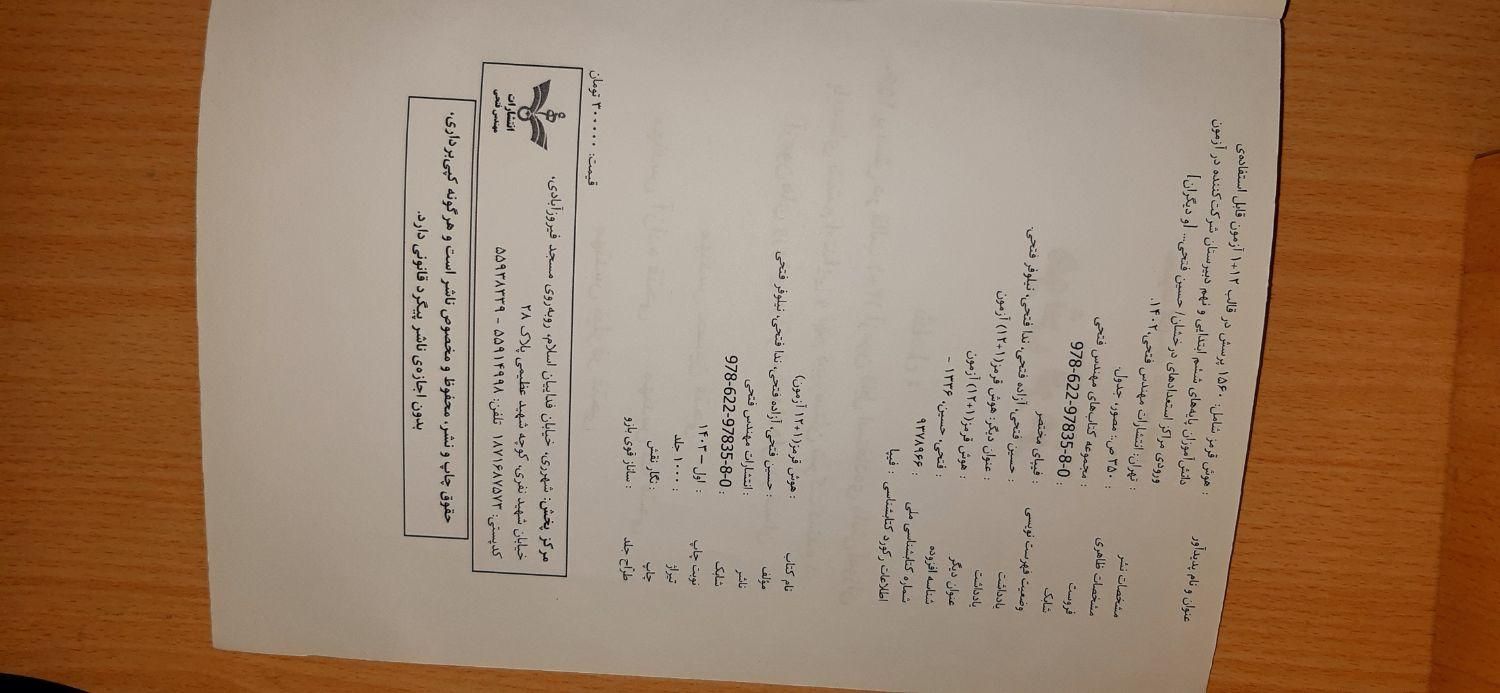 عنوان و نام پدیدآور : هوش قرمز شامل: ۱۵۶۰ پرسش در قالب ۱۲+۱ آزمون قابل استفاده‌ی
دانش‌آموزان پایه‌های ششم ابتدایی و نهم دبیرستان شرکت‌کننده در آزمون
ورودی مراکز استعدادهای درخشان/ حسین فتحی... [و دیگران]
مشخصات نشر : تهران: انتشارات مهندس فتحی،۱۴۰۲.
مشخصات ظاهری : ۲۵۰ ص.: مصور، جدول.
فروست : مجموعه کتاب‌های مهندس فتحی
شابک : 978-622-97835-8-0
وضعیت فهرست نویسی : فیپای مختصر
یادداشت : حسین فتحی، آزاده فتحی، ندا فتحی، نیلوفر فتحی.
یادداشت : عنوان دیگر: هوش قرمز(۱+۱۲) آزمون
عنوان دیگر : هوش قرمز(۱+۱۲) آزمون
شناسه افزوده : فتحی، حسین، ۱۳۳۶ -
شماره کتابشناسی ملی : ۹۳۷۸۹۶۶
اطلاعات رکورد کتابشناسی : فیپا
نام کتاب : هوش قرمز(۱+۱۲ آزمون)
مؤلف : حسین فتحی، آزاده فتحی، ندا فتحی، نیلوفر فتحی
ناشر : انتشارات مهندس فتحی
شابک : 978-622-97835-8-0
نوبت چاپ : اول – ۱۴۰۳
تیراژ : ۱۰۰۰ جلد
چاپ : نگار نقش
طراح جلد : ساناز قوی بازو
قیمت: ۳۰۰۰۰۰ تومان
مرکز پخش: شهرری، خیابان فداییان اسلام، روبه‌روی مسجد فیروزآبادی،
خیابان شهید نفری، کوچه شهید عظیمی پلاک ۲۸
کدپستی: ۱۸۷۱۶۸۷۵۷۳ تلفن: ۵۵۹۱۴۹۹۸ - ۵۵۹۳۸۳۳۹
انتشارات
مهندس فتحی
حقوق چاپ و نشر، محفوظ و مخصوص ناشر است و هرگونه کپی‌برداری،
بدون اجازه‌ی ناشر پیگرد قانونی دارد.